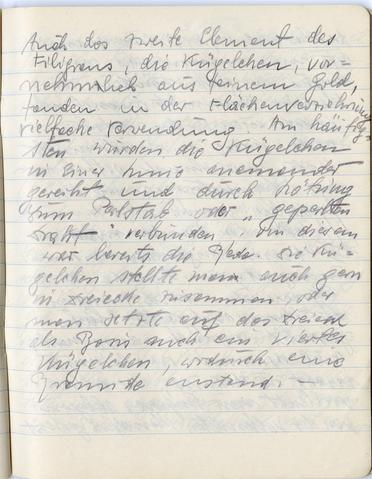 Auch das zweite Element des
Filigrans, die Kügelchen, vor-
nehmlich aus feinem Gold,
fanden in der Flächenverzierung
vielfache Verwendung. Am häufig-
sten wurden die Kügelchen
in einer Linie aneinander
gereiht und durch Lötung
zum Perlstab oder „geperlten
Draht" verbunden. Von diesem
war bereits die Rede. Die Kü-
gelchen stellte man auch gern
in Dreiecke zusammen, oder
man setzte auf das Dreieck
als Basis auch ein viertes
Kügelchen, wodurch eine
Pyramide entstand. —